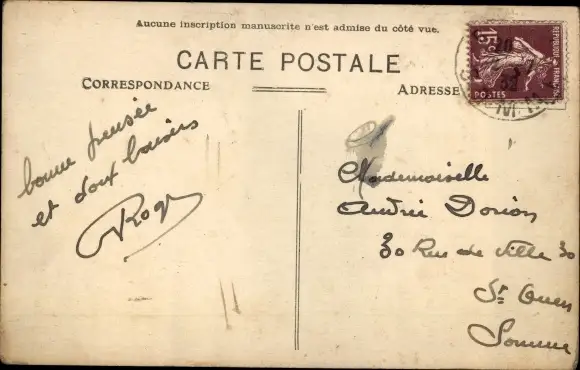 Aucune inscription manuscrite n'est admise du côté vue.
CARTE POSTALE
CORRESPONDANCE
ADRESSE
15c
REPUBLIQUE FRANÇAISE
POSTES
bonne pensée
et doux baisers
Roger
Mademoiselle
Andrée Dorion
30 Rue de Ville 30
St Ouen
Somme